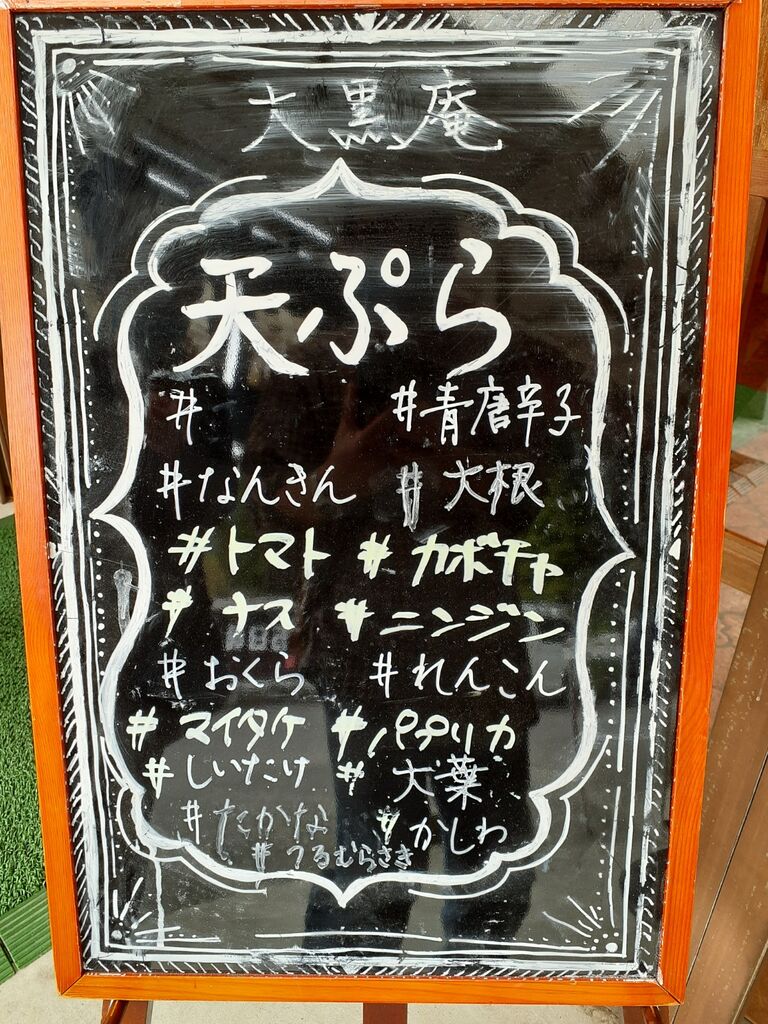 大黒庵
天ぷら
# #青唐辛子
#なんきん #大根
#トマト #カボチャ
#ナス #ニンジン
#おくら #れんこん
#マイタケ #パプリカ
#しいたけ #大葉
#たかな #かしわ
#うるむらさき